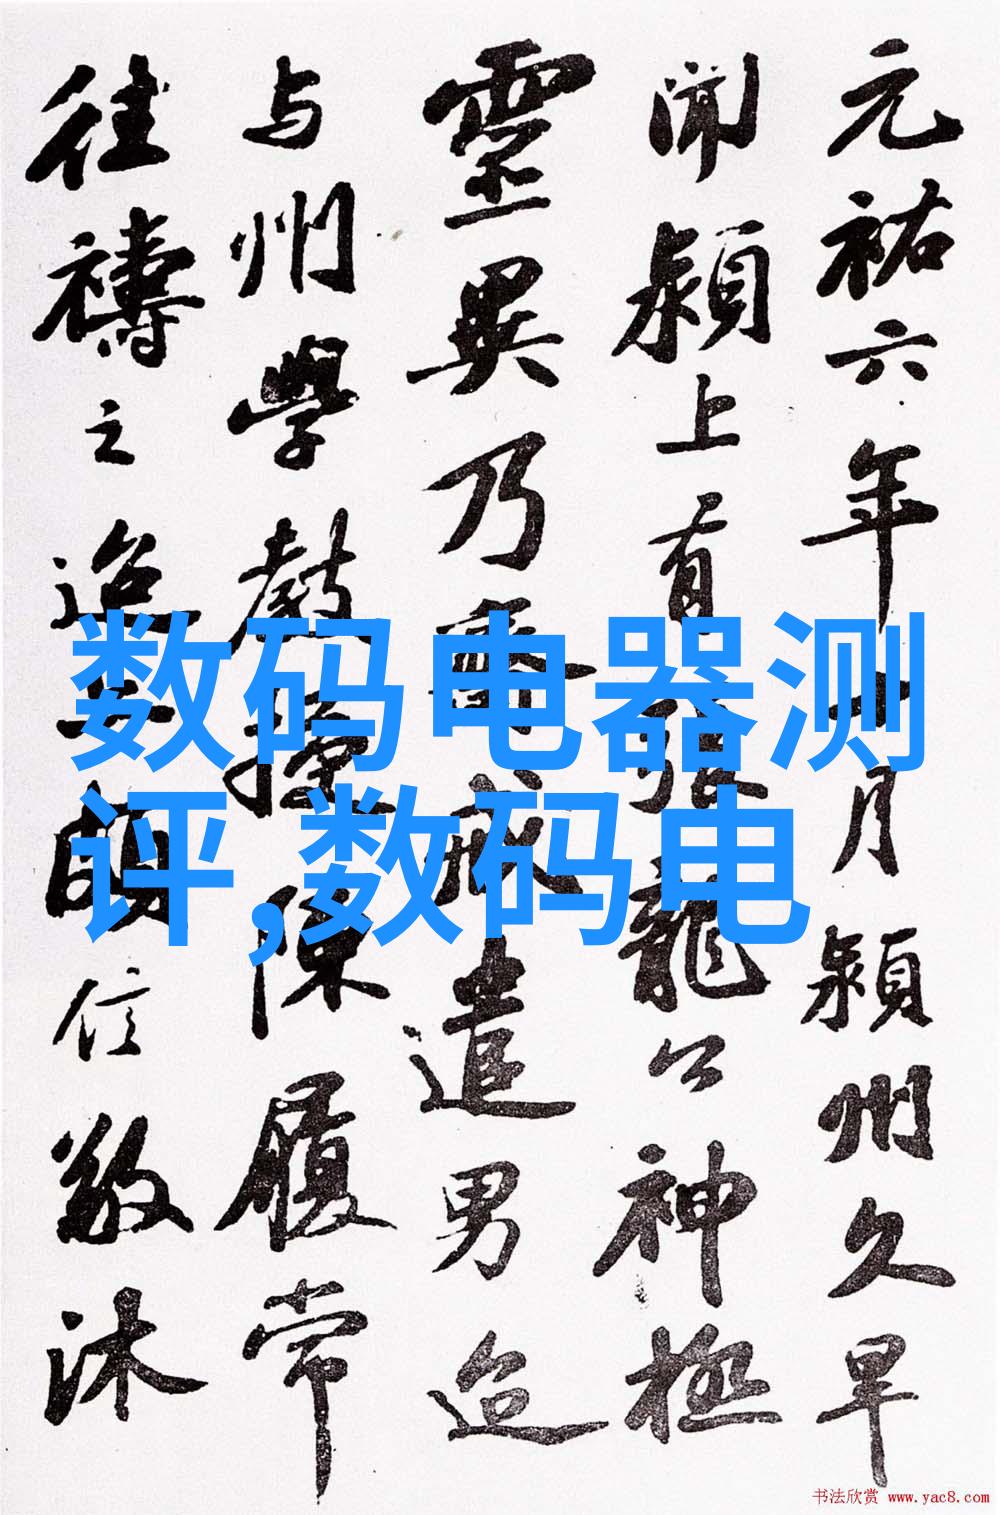 元祐六年十月潁州久旱
聞潁上有張龍公神極
靈異乃齋戒遣男迨
与州學教授陳履常
往禱之迨亦頗信敬沐
数码电器测
评,数码电
书法欣赏 www.yac8.com